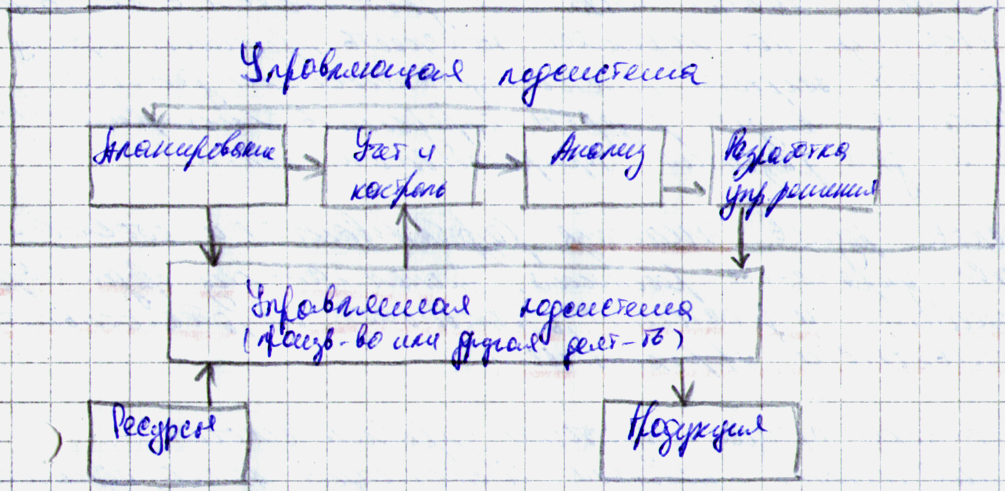 Управляющая подсистема
Планирование
Учет и
контроль
Анализ
Разработка
упр решения
Управляемая подсистема
(произв-во или другая деят-ть)
Ресурсы
Продукция
)